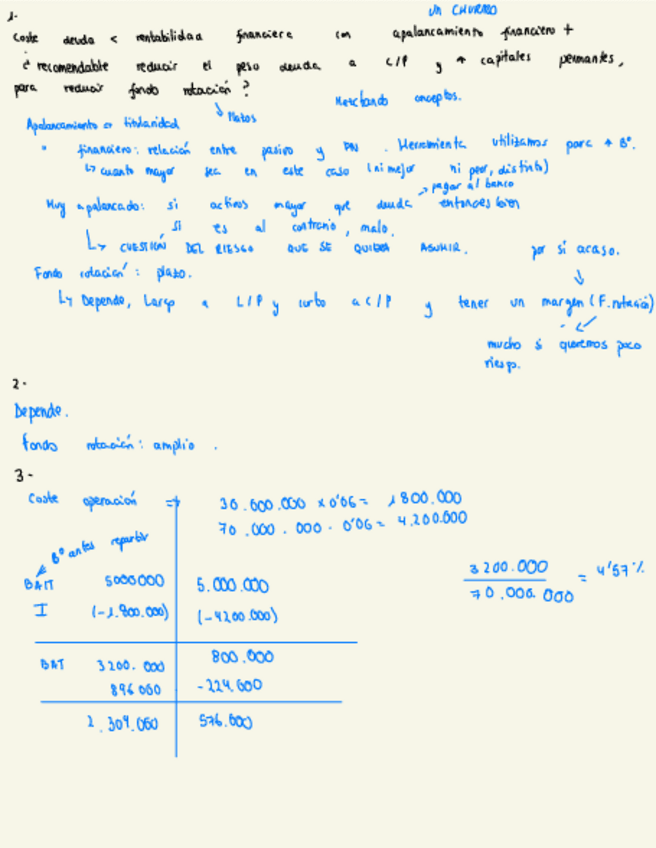 1-
UN CHURRO
Coste deuda < rentabilidad financiera con apalancamiento financiero +
¿ recomendable reducir el peso deuda a c/P y + capitales permantes,
para reducir fondo rotación ?
Mezclando conceptos.
Platos
Apalancamiento => titularidad
financiero: relación entre pasivo y PN . Herramienta utilizamos para + Bº.
↳ cuanto mayor sea en este caso (ni mejor ni peor, distinto)
→ pagar al banco
Muy apalancado: si activos mayor que deuda entonces bien
si es al contrario, malo.
↳ CUESTIÓN DEL RIESGO QUE SE QUIERA ASUMIR.
por si acaso.
Fondo rotación : plazo.
↳ Depende, Largo a L/P y corto a c/P y tener un margen (F. rotación)
mucho si queremos poco
riesgo.
2-
Depende.
Fondo rotación: amplio .
3-
Coste operación => 30.000.000 x 0'06 = 1 800.000
70 .000 . 000 . 0'06 = 4.200.000
Bº antes repartir
BAIT 5000000 5.000.000
I (-1.800.000) (-4200.000)
3 200.000 / 70.000.000 = 4'57 %
BAT 3200. 000 800.000
896 000 -224.000
2. 304.000 576.000